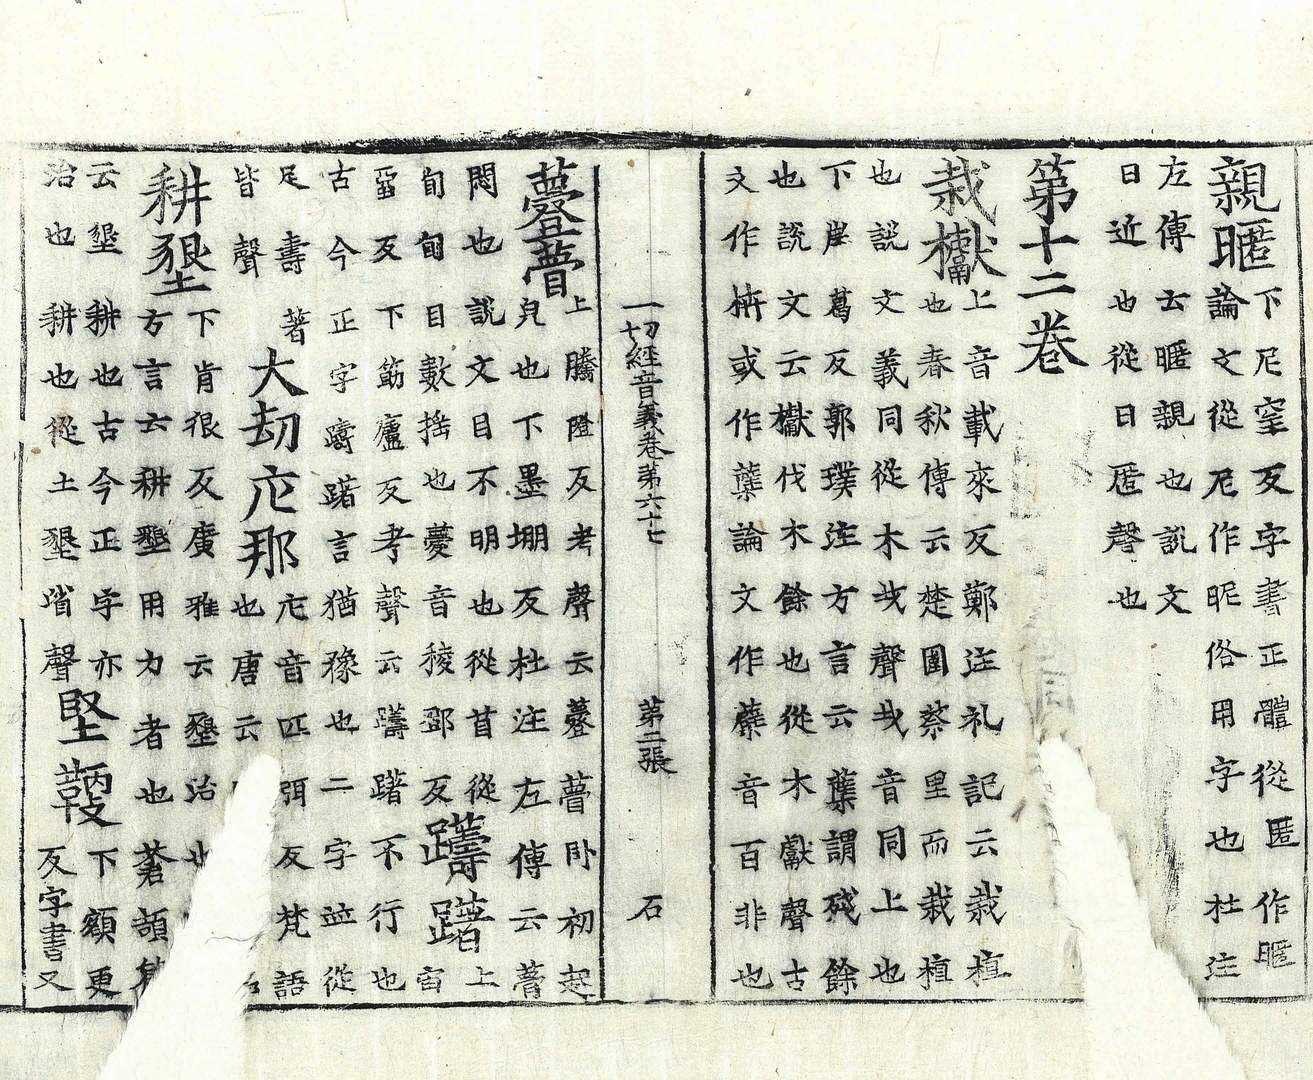 親暱下尼窒反字書正體從匿作暱
論文從尼作昵俗用字也杜注
左傳云暱親也說文
日近也從日匿聲也
第十二卷
栽𣡌上音載來反鄭注礼記云栽植
也春秋傳云楚圍蔡里而栽植
也說文義同從木𢦏聲𢦏音同上也
下崖葛反郭璞注方言云蘖謂殘餘
也說文云𣡌伐木餘也從木獻聲古
文作㭓或作蘖論文作蘗音百非也
一切經音義卷第六十七 第二張 石
薹瞢上騰隥反考聲云薹瞢卧初起
皃也下墨堋反杜注左傳云瞢
悶也說文目不明也從苜從
旬旬目數搖也薹音稜鄧反
躊躇上宙
畱反下筯廬反考聲云躊躇不行也
古今正字躊躇言猶豫也二字並從
足壽著
皆聲
大劫庀那庀音匹弭反梵語
也唐云
耕墾下肯很反廣雅云墾治
方言云耕墾用力者也蒼頡
云墾耕也古今正字亦
治也耕也從土墾省聲
堅下額更
反字書又